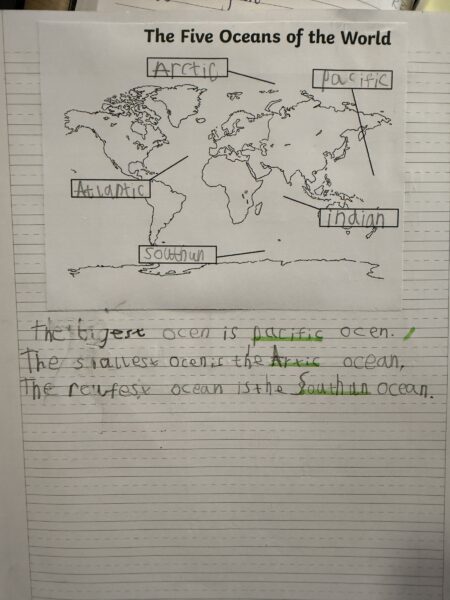 The Five Oceans of the World
Arctic
pacific
Atlantic
indian
southun
the bigest ocen is pacific ocen.
The smallest ocen is the Arxic ocean,
The roufest ocean is the Southun ocean.